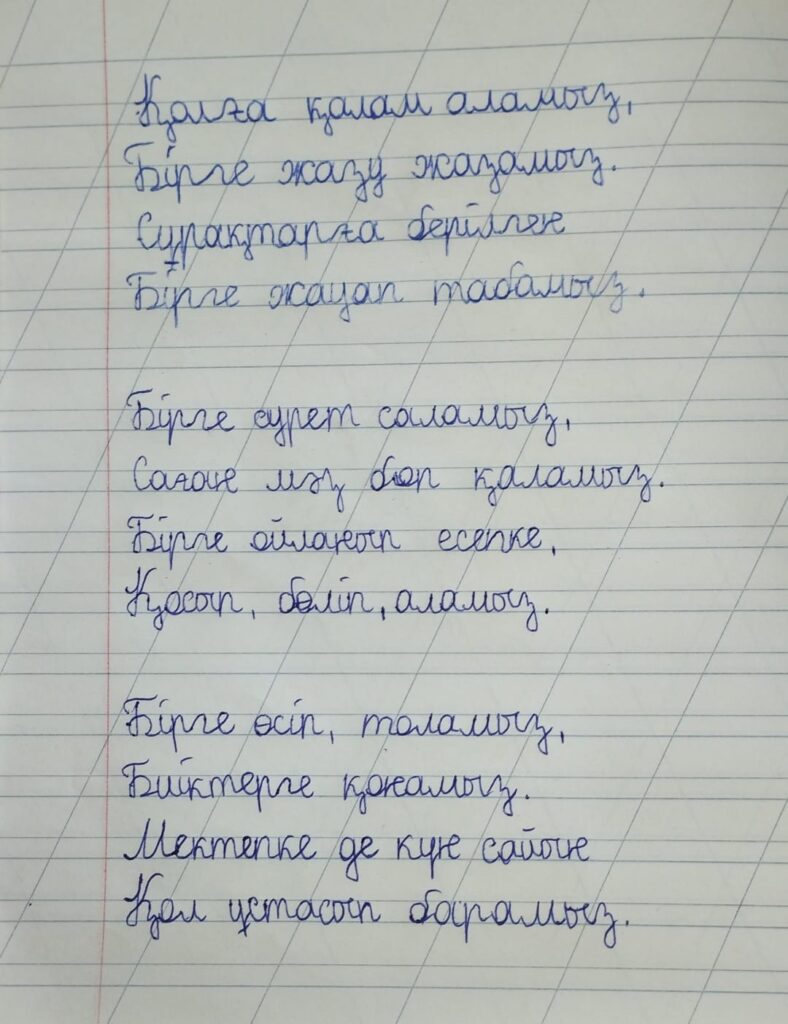 Қолға қалам аламыз,
Бірге жазу жазамыз.
Сұрақтарға берілген
Бірге жауап табамыз.
Бірге сурет саламыз,
Саған мәз боп қаламыз.
Бірге ойланып есепке,
Қосып, бөліп, аламыз.
Бірге өсіп, толамыз,
Биіктерге қонамыз.
Мектепке де күн сайын
Қол ұстасып барамыз.